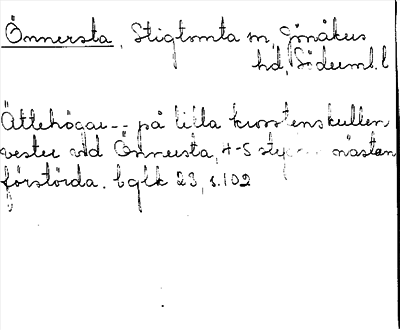 Önnersta, Stigtomta sn, Jönåkers
hd, Söderml. l
Ättehögar -- på lilla krosstenskullen
vester vid Önnersta, 4-5 st, --- nästan
förstörda. bglk 23, s. 102